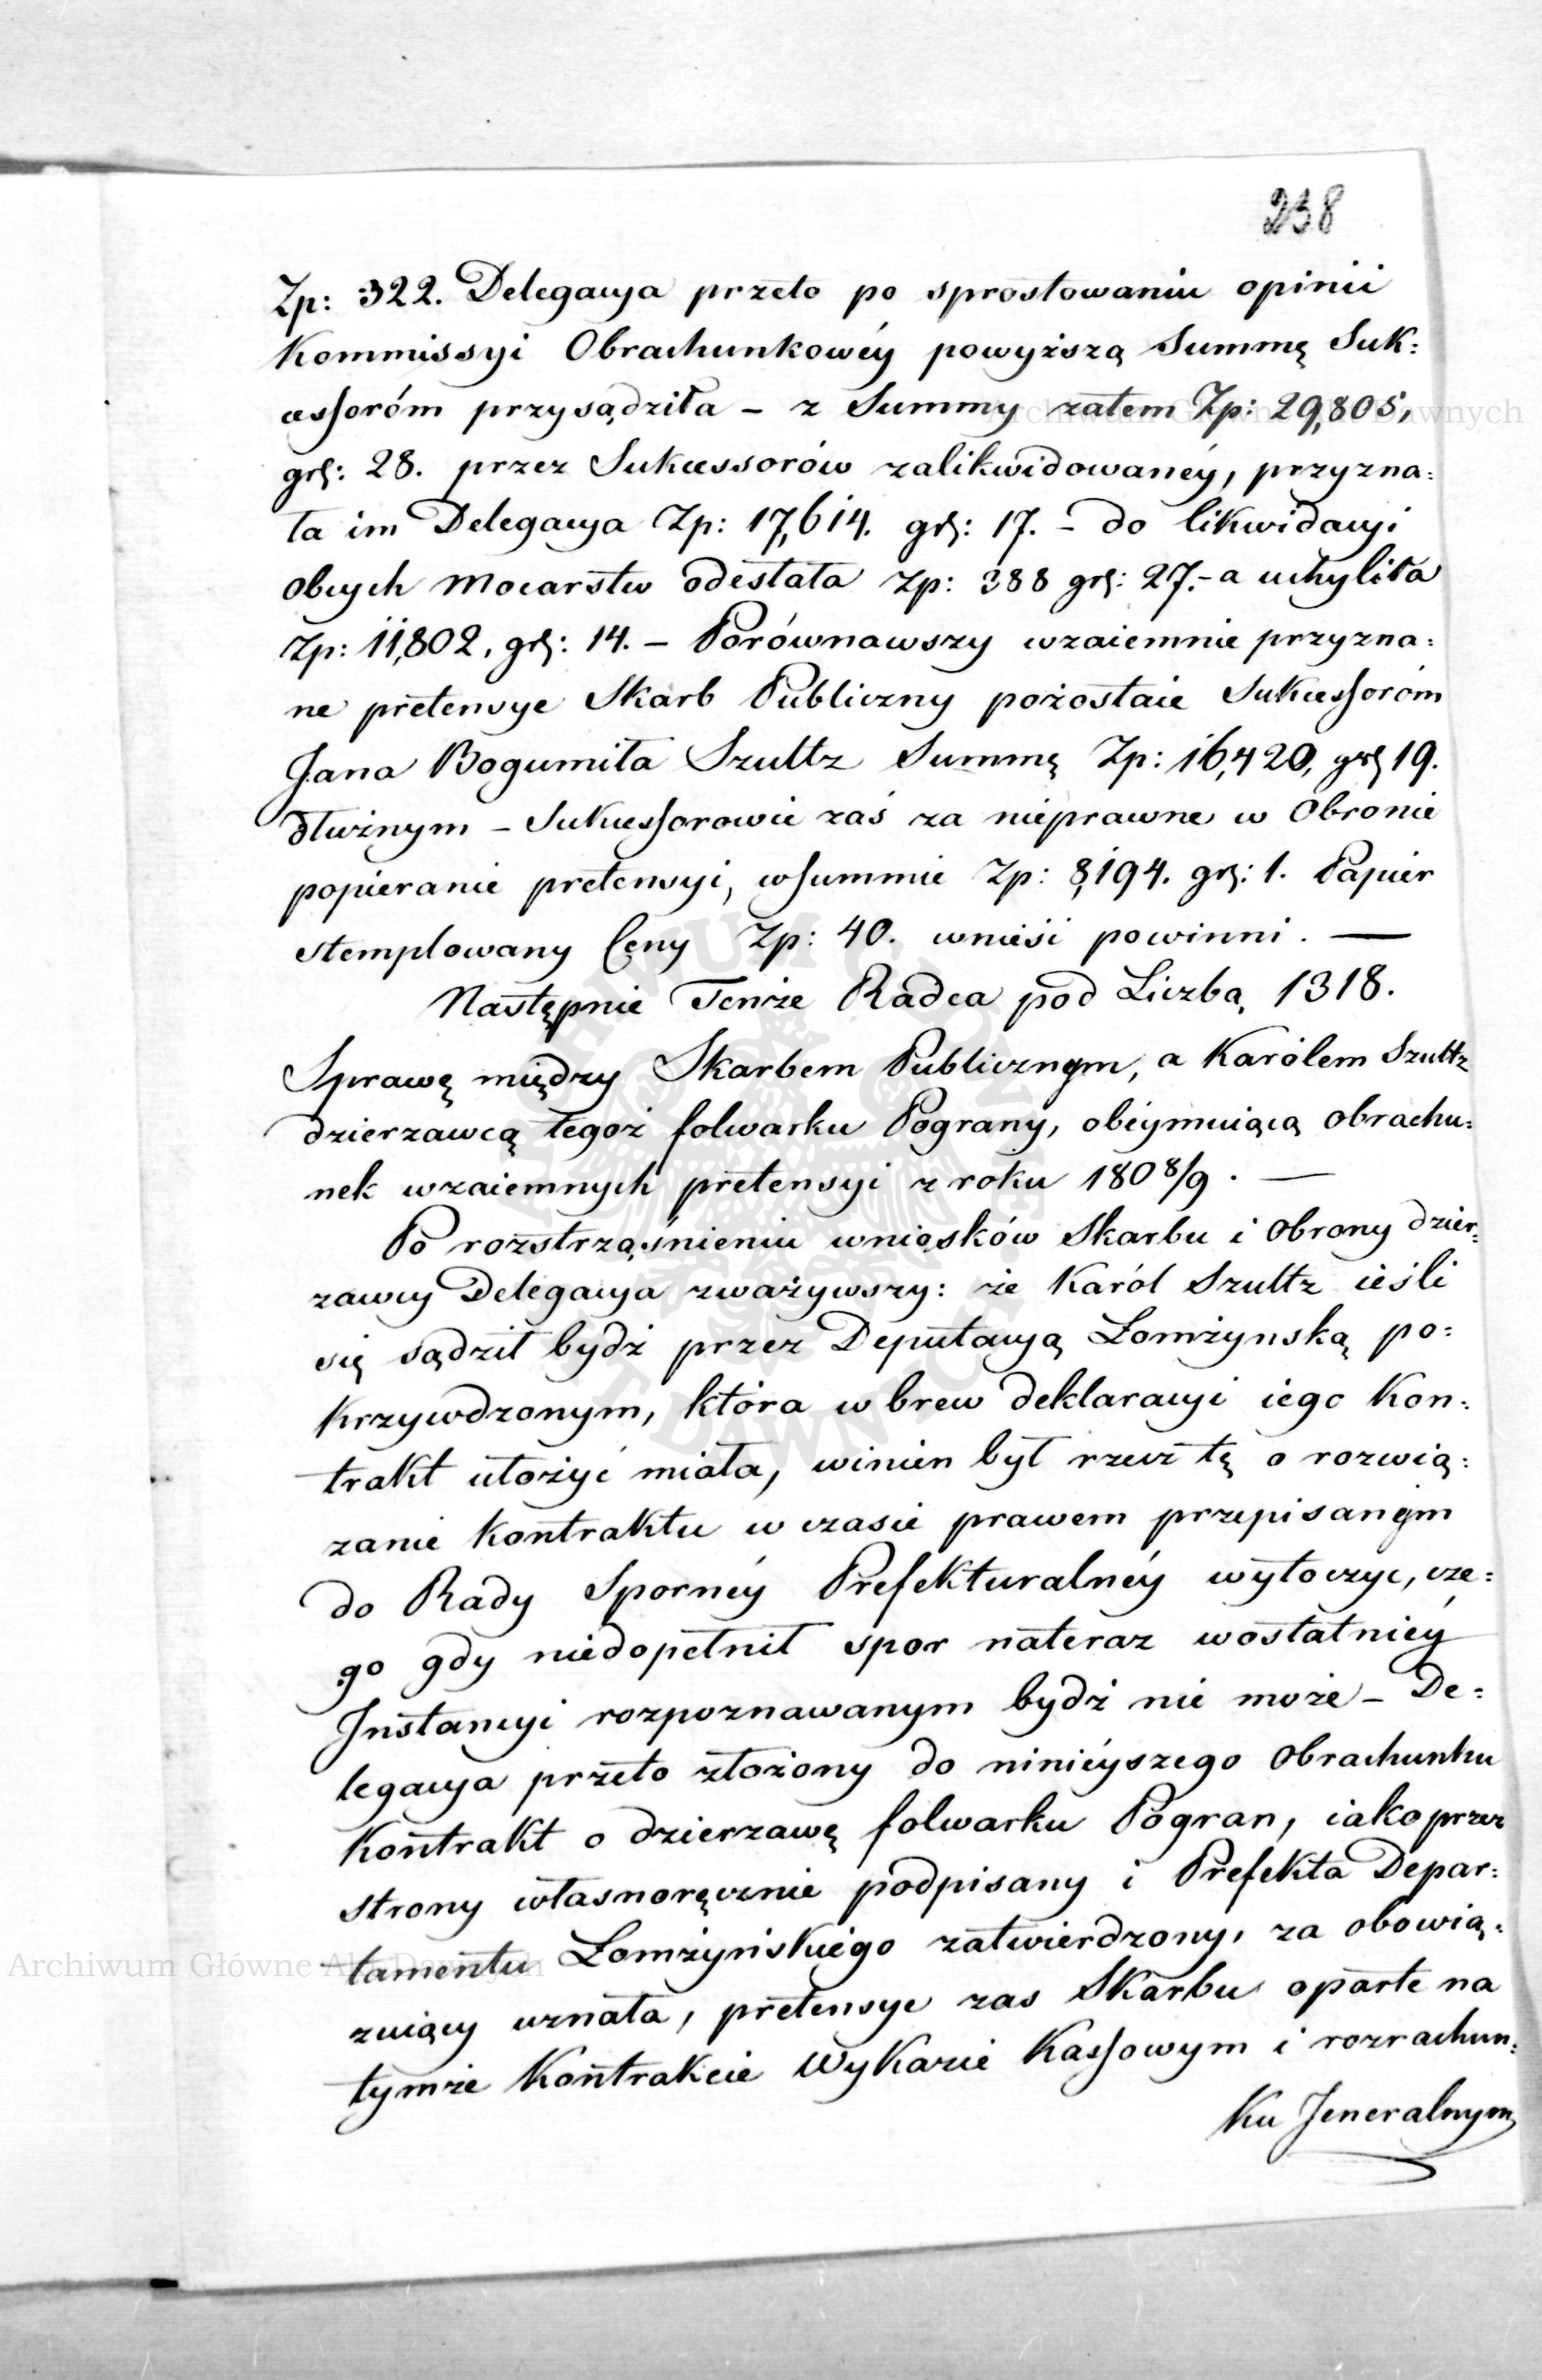 238
Zp: 322. Delegacya przeto po sprostowaniu opinii
Kommissyi Obrachunkowéy powyższą Summę Suk:
cessoróm przysądziła – z Summy zatem Zp: 29,805,
grs: 28. przez Sukcessorów zalikwidowanéy, przyzna:
ła im Delegacya Zp: 17,614. grs: 17. – do likwidacyi
Obcych Mocarstw odesłała Zp: 388 grs: 27. – a uchyliła
Zp: 11,802, grs: 14. – Porównawszy wzaiemnie przyzna:
ne pretensye Skarb Publiczny pozostaie Sukcessoróm
Jana Bogumiła Szultz Summę Zp: 16,420, grs 19.
dłużnym – Sukcessorowie zaś za nieprawne w Obronie
popieranie pretensyi, w summie Zp: 8,194. grs: 1. Papier
stemplowany Ceny Zp: 40. wnieśi powinni. —
Następnie Tenże Radca pod Liczbą 1318.
Sprawę między Skarbem Publicznym, a Karólem Szultz
dzierzawcą tegoż folwarku Pograny, obeymuiącą obrachu:
nek wzaiemnych pretensyi z roku 1808/9. —
Po roztrząśnieniu wniosków Skarbu i Obrony dzier:
zawcy Delegacya zważywszy: że Karól Szultz ieśli
się sądził bydź przez Deputacyą Łomżynską po:
krzywdzonym, która wbrew deklaracyi iego Kon:
trakt ułożyć miała, winien był rzecz tę o rozwią:
zanie Kontraktu w czasie prawem przepisanym
do Rady Sporney Prefekturalnéy wytoczyc, cze:
go gdy niedopełnił spor nateraz w ostatniéy
Instancyi rozpoznawanym bydź nie może – De:
legacya przeto złożony do ninieyszego Obrachunku
Kontrakt o dzierzawę folwarku Pogran, iako przez
strony własnoręcznie podpisany i Prefekta Depar:
tamentu Łomżyńskiego zatwierdzony, za obowią:
zuiący uznała, pretensye zas Skarbu oparte na
tymże Kontrakcie Wykazie Kassowym i rozrachun:
ku Jeneralnym
Archiwum Główne Akt Dawnych
Archiwum Główne Akt Dawnych